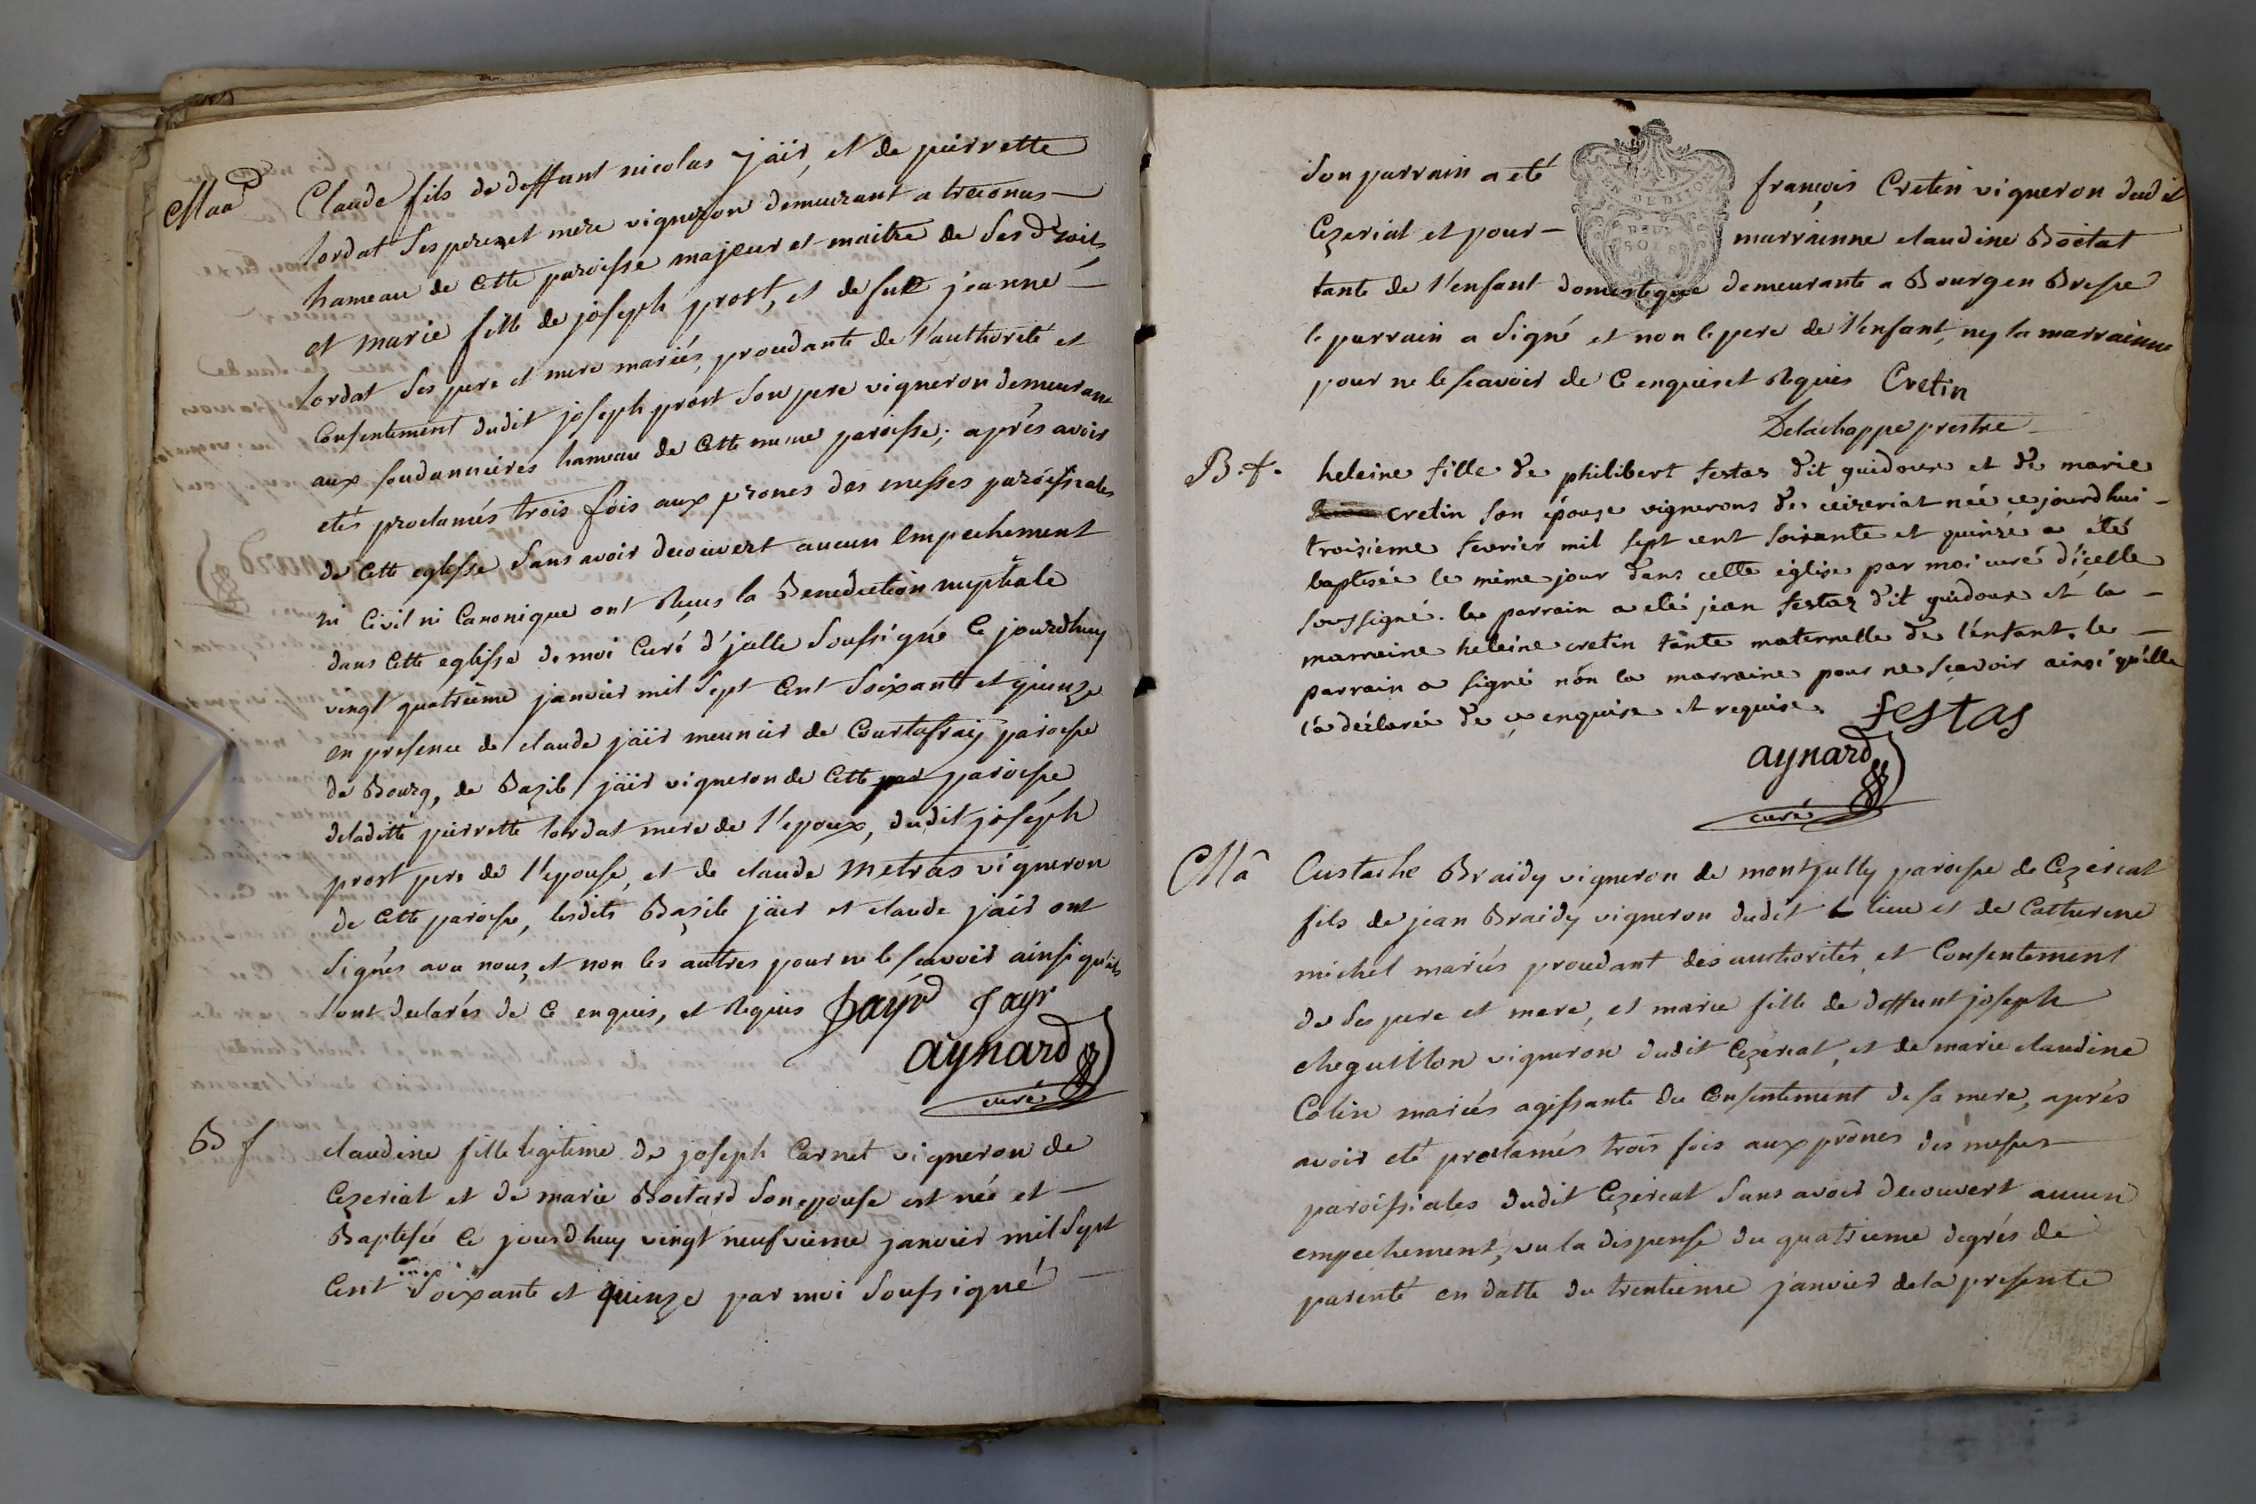 Maa Claude fils de deffunt nicolas jäir, et de pierrette
tordat ses pere et mere vigneron demeurant a treconas
hameau de cette paroisse majeur et maitre de ses droits
et marie fille de joseph prost, et de fue jeanne
tordat ses pere et mere mariés, proudante de l'authorité et
consentement dudit joseph prost son pere vigneron demeurant
aux hameau de cette meme paroisse; aprés avoir
etés proclamés trois fois aux prones des messes paroissiales
de cette eglisse sans avoir decouvert aucun empechement
ni Civil ni Canonique ont reçus la Benediction nuptiale
dans cette eglisse de moi Curé d'jcelle soussigné ce jourdhuy
vingt quatrieme janvier mil sept Cent soixante et quinze
en presence de claude jäir meunier de paroisse
de Bourg, de Bazile jäir vigneron de cette paroisse
deladitte pierrette tordat mere de l'epoux, dudit joséph
prost pere de l'epouse, et de claude metras vigneron
de cette paroisse, lesdits Bazile jäir et claude jäir ont
signés avec nous, et non les autres pour ne le scavoir ainsi qu'ils
l'ont declarés de ce enquis, et requis Jayr Jayr
aynard
curé
B f claudine fille legitime de joseph Carnet vigneron de
Cezeriat et de marie Boitard son epouse est née et
Baptisée ce jourdhuy vingt neufvieme janvier mil sept
Cent soixante et quinze par moi soussigné
son parrain a eté françois Cretin vigneron dudit
Cezeriat et pour marrainne claudine Boitat
tante de l'enfant domestique demeurante a Bourg en Bresse
le parrain a signé et non le pere de l'enfant, ny la marrainne
pour ne le scavoir de ce enquis et requis Cretin
Delachappe prestre
B. f. heleine fille de philibert festas dit guidoux et de marie
cretin son épouse vignerons de céizeriat née cejourdhui
troisieme fevrier mil sept cent soixante et quinze a été
baptisée le même jour dans cette église par moi curé d'icelle
soussigné. le parrain a eté jean festas dit guidoux et la
marraine heleine cretin tante maternelle de l'enfant. le
parrain a signé non la marraine pour ne scavoir ainsi qu'elle
l'a déclaré de ce enquise et requise. festas
aynard
curé
Ma Eustache Braidy vigneron de montjully paroisse de Cezeriat
fils de jean Braidy vigneron dudit lieu et de Catherine
michel mariés proudant des authorités et Consentement
de ses pere et mere, et marie fille de deffunt joseph
cheguillon vigneron dudit Cezeriat, et de marie claudine
Colin mariés agissante du Consentement de sa mere, aprés
avoir eté proclamés trois fois aux prônes des messes
paroissiales dudit Cezeriat sans avoir decouvert aucun
empechement, vu la dispense du quatrieme degrés de
parenté en datte du trentieme janvier de la presente